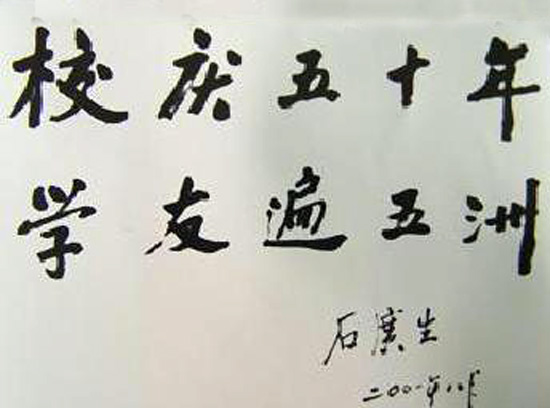 校庆五十年
学友遍五洲
石广生
二00一年八月